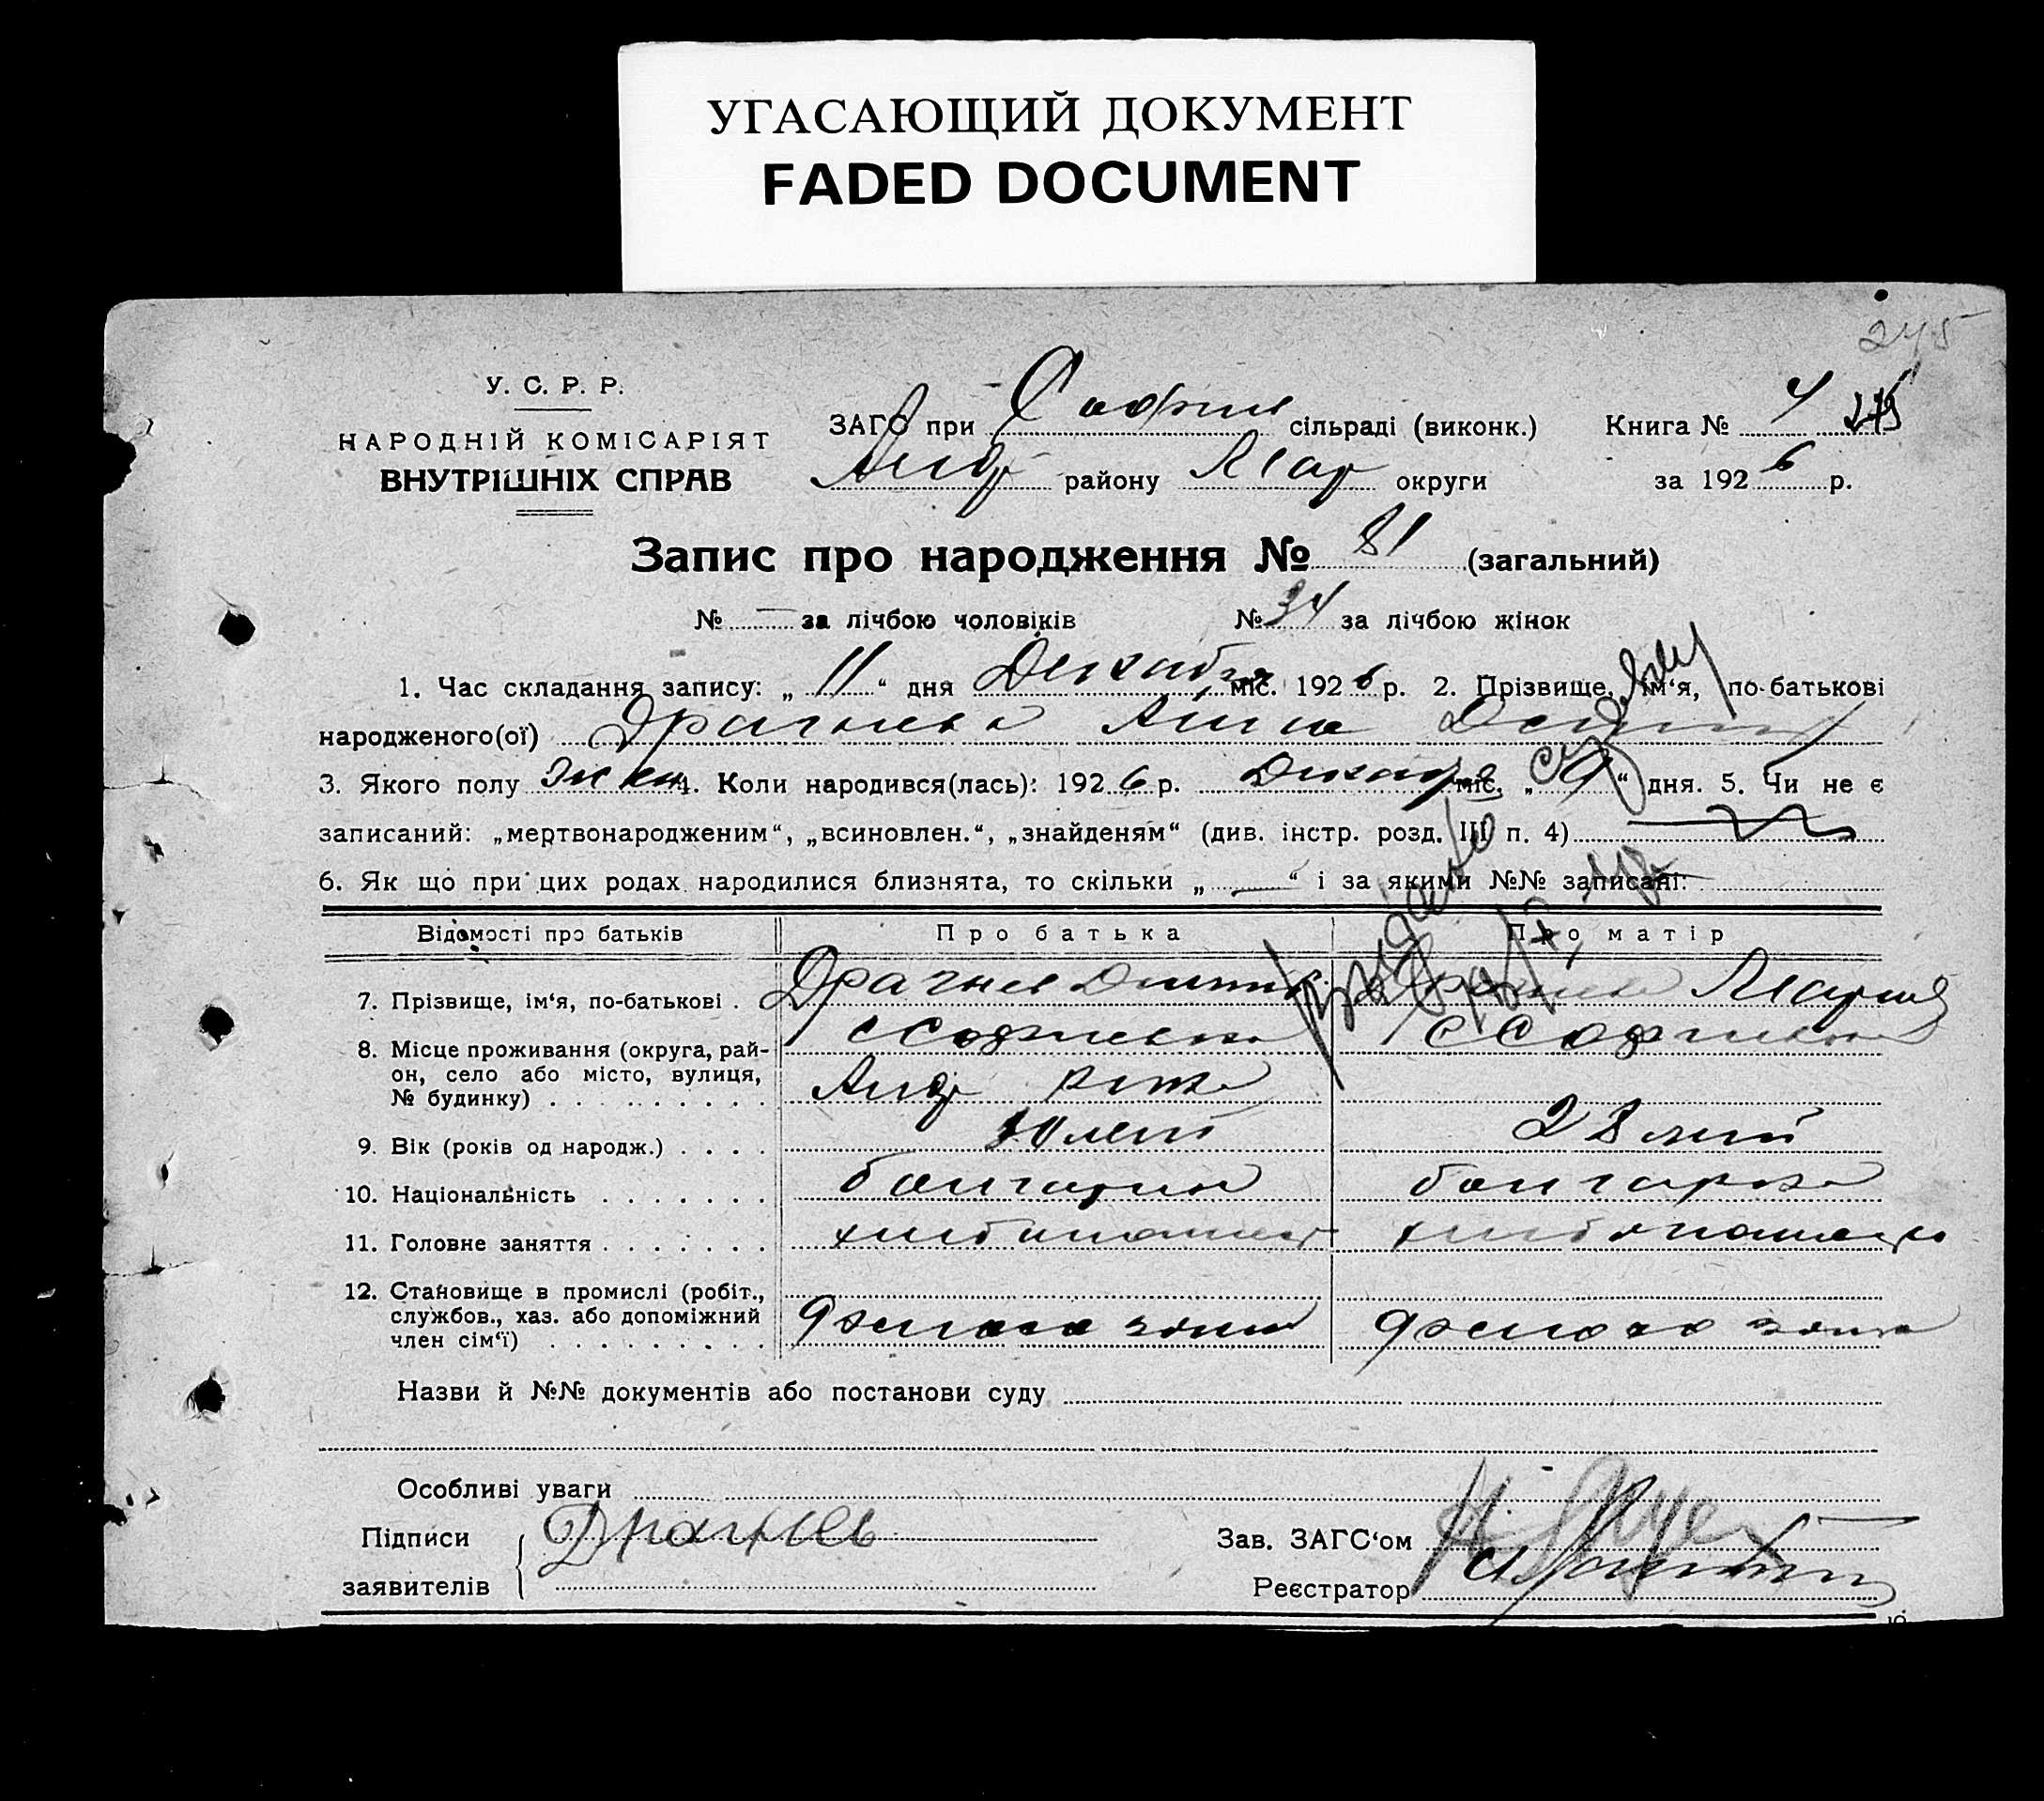 УГАСАЮЩИЙ ДОКУМЕНТ
FADED DOCUMENT
245
У. С. Р. Р.
НАРОДНІЙ КОМІСАРІЯТ
ВНУТРІШНІХ СПРАВ
ЗАГС при Софиев сільраді (виконк.)
Книга №
Анд району Мар округи
за 1926 р.
Запис про народження № 81 (загальний)
№ — за лічбою чоловіків № 34 за лічбою жінок
1. Час складання запису: „11“ дня Декабря міс. 1926 р. 2. Прізвище, ім‘я, по-батькові
народженого(ої) Драгнева Анна
3. Якого полу жен 4. Коли народився(лась): 1926 р. Декабря міс. „9“ дня. 5. Чи не є
записаний: „мертвонародженим“, „всиновлен.“, „знайденям“ (див. інстр. розд. III п. 4)
6. Як що при цих родах народилися близнята, то скільки „—“ і за якими №№ записані:
Відомості про батьків
Про батька
Про матір
7. Прізвище, ім‘я, по-батькові . Драгнев Дмитр Мария
8. Місце проживання (округа, рай-
он, село або місто, вулиця,
№ будинку) . . . . . . . . .
с Софиевка
с Софиевка
Анд
9. Вік (років од народж.) . . . . 30 лет 28 лет
10. Національність . . . . . . . болгарин болгарка
11. Головне заняття . . . . . . . хлебопашец
12. Становище в промислі (робіт.,
службов., хаз. або допоміжний
член сім‘ї) . . . . . . . . .
Назви й №№ документів або постанови суду
Особливі уваги
Підписи
заявителів
Драгнев
Зав. ЗАГС‘ом
Реєстратор